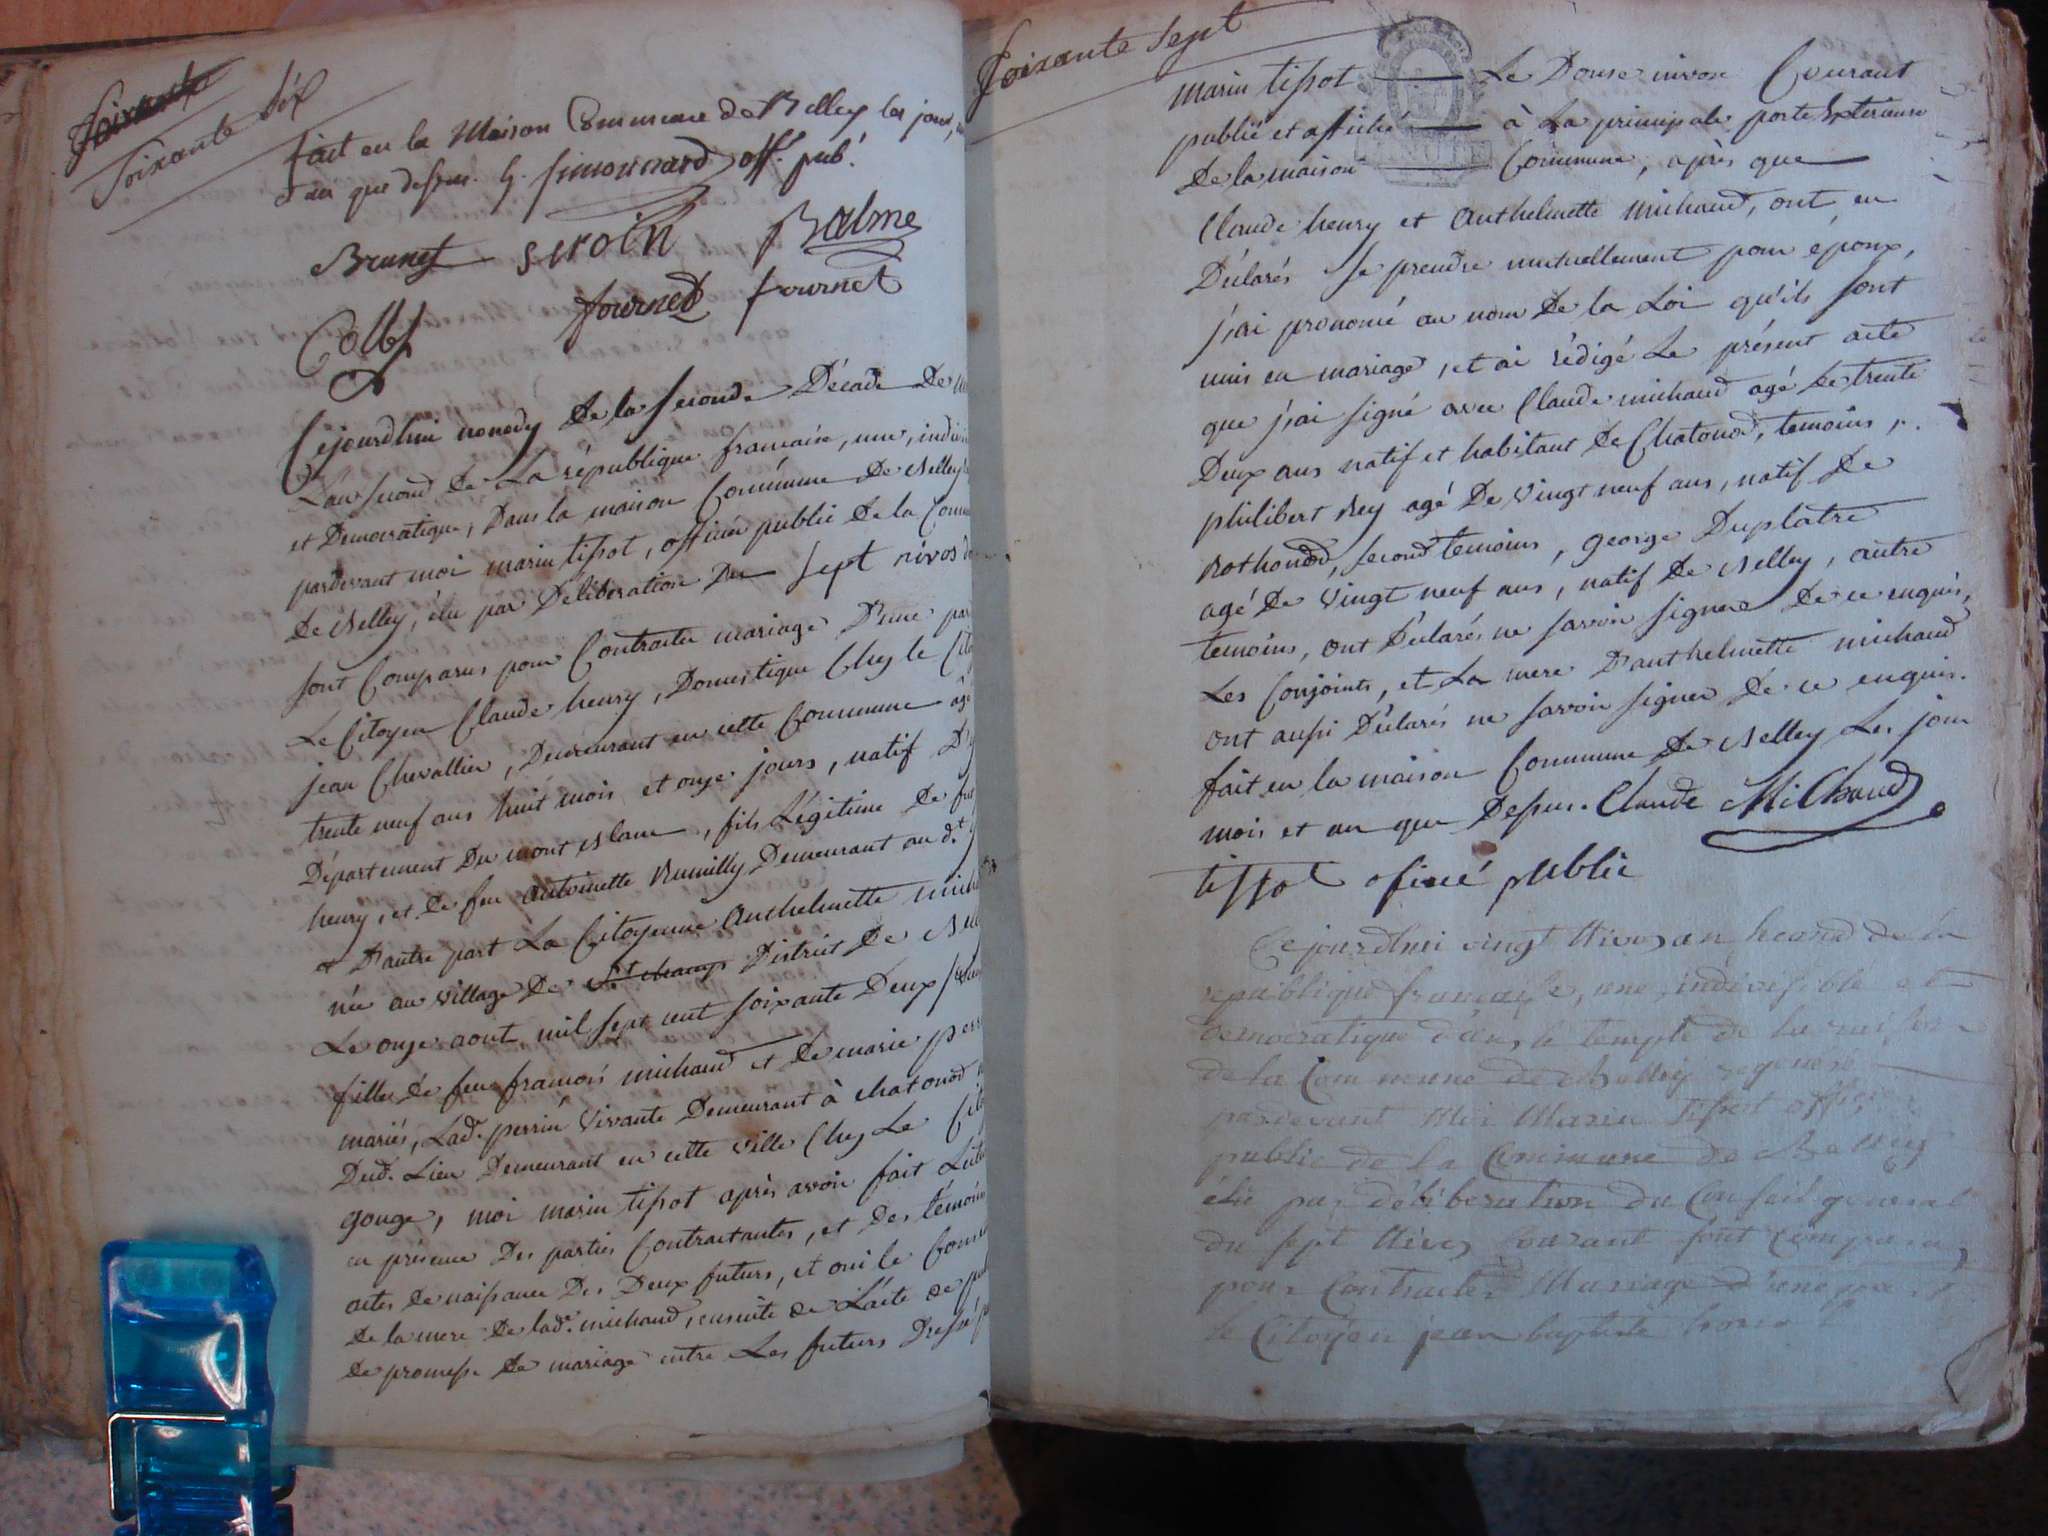 Soixante
Soixante Six
fait en la Maison Commune de Belley les jour,
et an que dessus. G. Simonnard off. pub.
Brunet Siroin Balme
Collet fournet fournet
Cejourdhui nonody de la seconde Décade de
L'an second de La république francaise, une,
et Démocratique, Dans la maison Commune De Belley
pardevant moi marin tissot, officier public De la
De Belley, élu par Déliberation Du sept nivos
sont Comparus pour Contracter mariage D'une
Le Citoyen Claude henry, Domestique Chez le
jean Chevallier, Demeurant en cette Commune agé
trente neuf ans huit mois et onze jours, natif
Département Du mont Blanc, fils Légitime De
henry, et De feu antoinette Rumilly Demeurant au d.t
et D'autre part La Citoyenne Anthelmette
née au village De St champ District De
Le onze aout mil sept cent soixante Deux
fille De feu francois michaud et De marie
mariés, Lad. perrin vivante Demeurant à chatonod
Dud. Lieu Demeurant en cette ville Chez Le
gouge, moi marin tissot après avoir fait
en présence Des parties Contractantes, et Des témoins
actes De naissance Des Deux futurs, et oui le
De la mere De lad. michaud, ensuite de L'acte de
De promesse De mariage entre Les futurs Dressé
Soixante Sept
marin tissot Le Douse nivose Courant
publié et affiché à La principale porte Exterieure
De la maison Commune, après que
Claude henry et Anthelmette michaud, ont eu
Déclarés se prendre mutuellement pour époux,
j'ai prononcé au nom De la Loi qu'ils sont
unis en mariage, et ai rédigé Le présent acte
que j'ai signé avec Claude michaud agé De trente
Deux ans natif et habitant De Chatonod, temoins,
philibert Rey agé De vingt neuf ans, natif De
Rothonod, second temoins, george Duplatre
agé De vingt neuf ans, natif De Belley, autre
temoins, ont Déclarés ne savoir signer De ce enquis,
Les Conjoints, et La mere D'anthelmette michaud
ont aussi Déclarés ne savoir signer De ce enquis.
fait en la maison Commune De Belley Les jour
mois et an que Dessus. Claude MiChaud
tissot oficié public
Ce jourdhui vingt Nivos an second de la
republique française, une, indivisible et
democratique dans le temple de la raison
de la Commune de Belley regeneré
pardevant Moi Marin tissot officier
public de la Commune de Belley
élu par déliberation du Conseil general
du sept Nivos Courant sont comparus
pour Contracter Mariage d'une part
le Citoyen jean baptiste